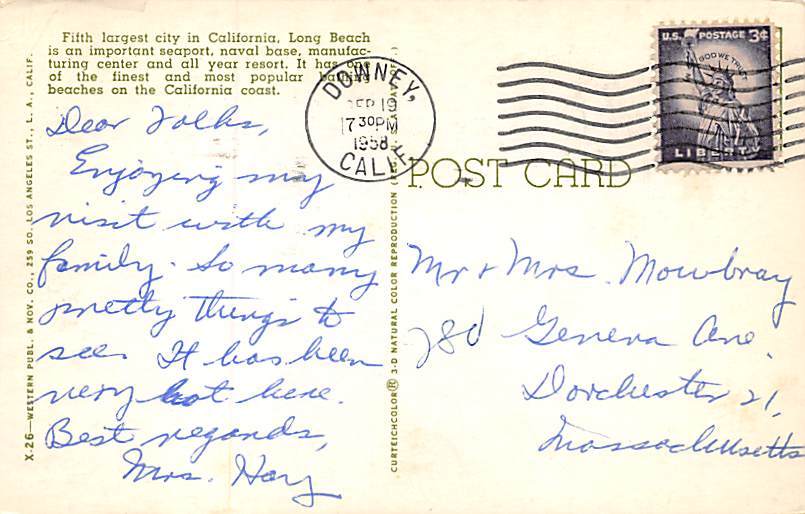 Fifth largest city in California, Long Beach
is an important seaport, naval base, manufac-
turing center and all year resort. It has one
of the finest and most popular bathing
beaches on the California coast.
Dear Folks,
Enjoying my
visit with my
family. So many
pretty things to
see. It has been
very hot here.
Best regards,
Mrs. Hay
X-26—WESTERN PUBL. & NOV. CO., 259 SO. LOS ANGELES ST., L. A., CALIF.
CURTEICHCOLOR® 3-D NATURAL COLOR REPRODUCTION
DOWNEY,
SEP 19
7 30 PM
1958
CALIF.
U.S. POSTAGE 3¢
IN GOD WE TRUST
LIBERTY
POST CARD
Mr & Mrs. Mowbray
280 Geneva Ave.
Dorchester 21,
Massachusetts